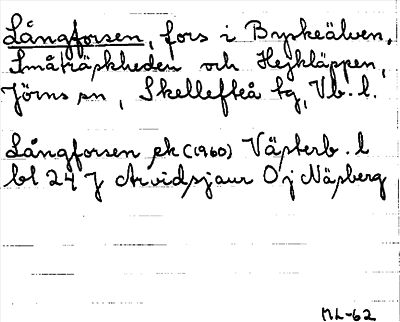 Långforsen, fors i Byskeälven,
Småträskheden och Hejkläppen,
Jörns sn, Skellefteå tg, Vb. l.
Långforsen ek (1960) Västerb. l
bl 24 J Arvidsjaur O j Näsberg
ML-62